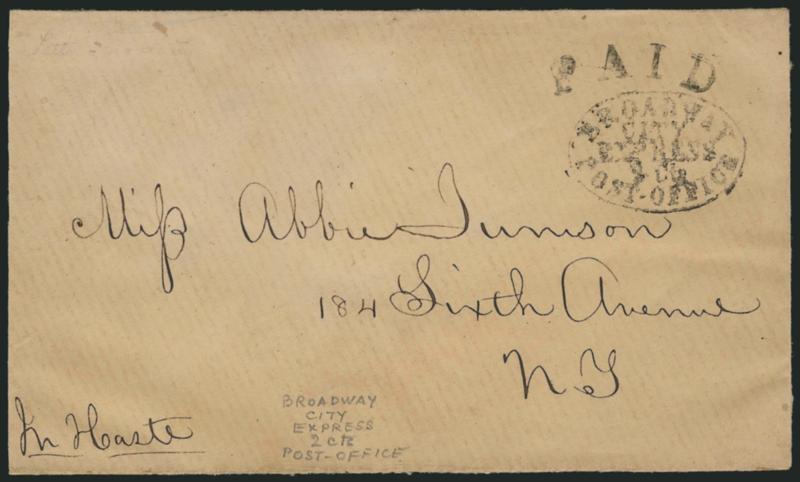 PAID
BROADWAY
CITY
EXPRESS
2 cts
POST-OFFICE
Miss Abbie Junison
184 Sixth Avenue
N.Y
In Haste
BROADWAY
CITY
EXPRESS
2 cts
POST-OFFICE